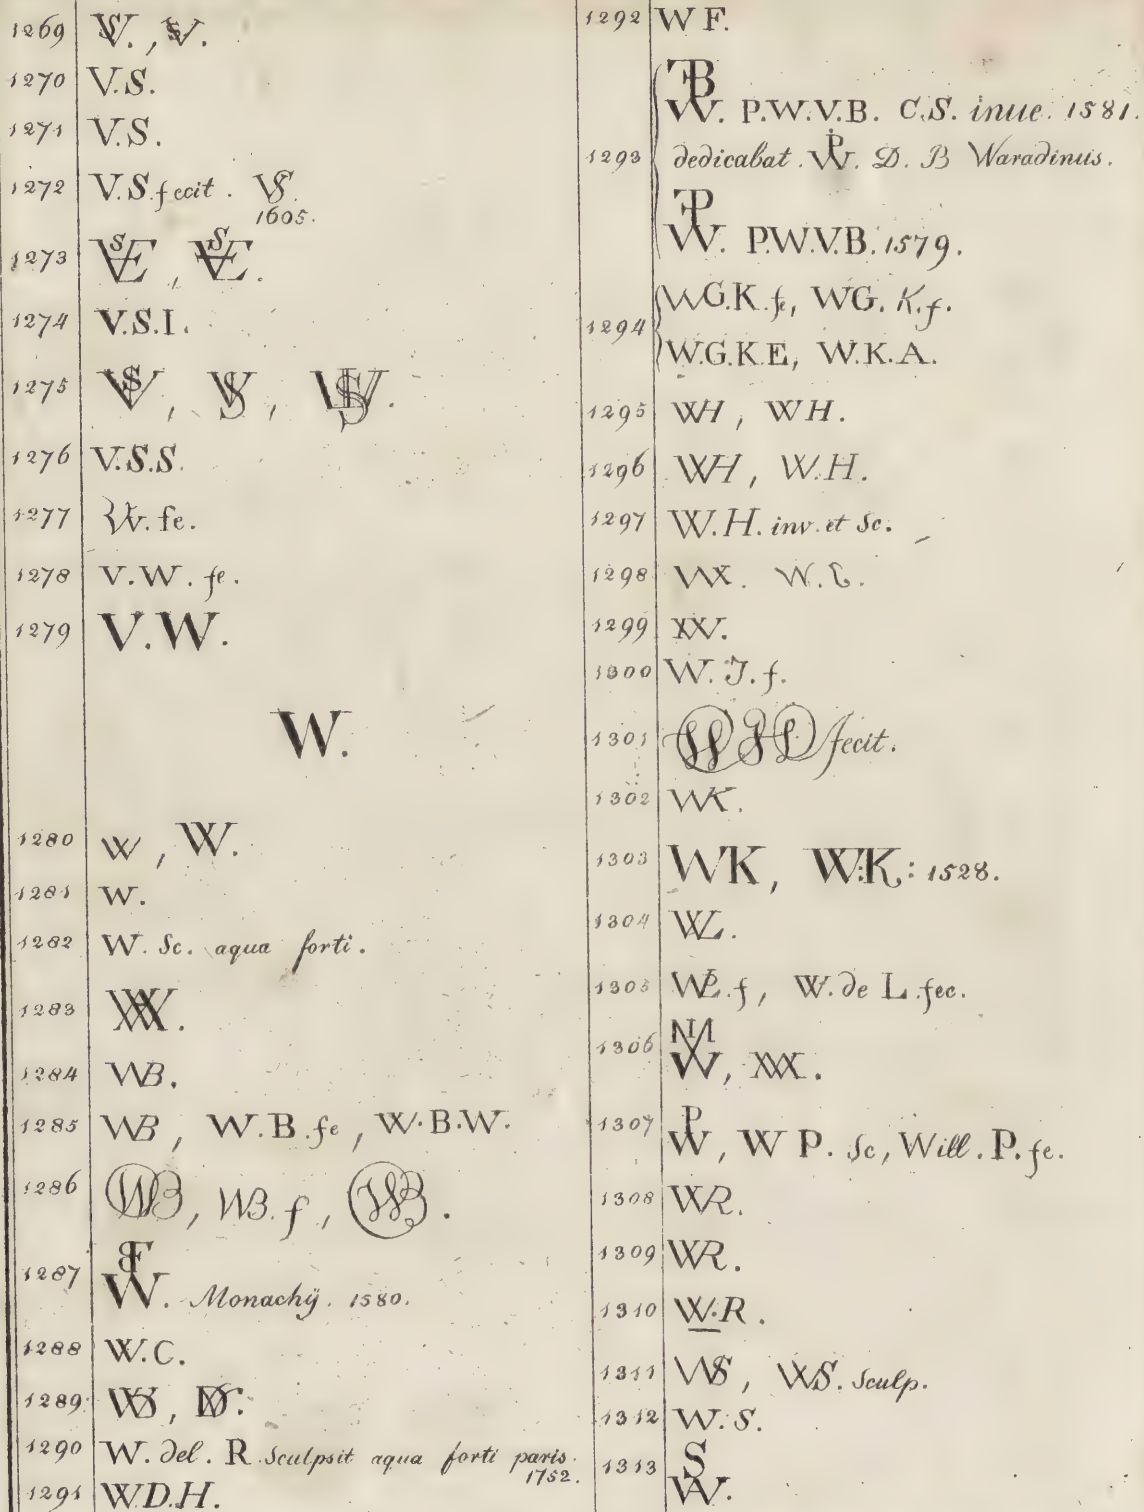 1269 VS., SV.
1270 V.S.
1271 V.S.
1272 V.S. fecit. VS.
1605.
1273 VSE, VSE.
1274 V.S.I.
1275 VS, VS, VS.
1276 V.S.S.
1277 W. fe.
1278 V.W. fe.
1279 V.W.
W.
1280 W, W.
1281 W.
1282 W. Sc. aqua forti.
1283 WW.
1284 WB.
1285 WB, W.B. fe, W.B.W.
1286 WB, WB. f, WB.
1287 BF
W. Monachÿ. 1580.
1288 W.C.
1289 WD,
1290 W. del. R Sculpsit aqua forti paris.
1752.
1291 W.D.H.
1292 W F.
1293 FB
W. P.W.V.B. C.S. inue. 1581.
dedicabat. PW. D. B Waradinus.
FP
W. P.W.V.B. 1579.
1294 WG.K. fe, WG. K.f.
W.G.K.E, W.K.A.
1295 WH, WH.
1296 WH, W.H.
1297 W.H. inv. et Sc.
1298 WX. W.
1299 XW.
1300 W. J. f.
1301 fecit.
1302 WK.
1303 WK, W:K: 1528.
1304 WL.
1305 WL. f, W. de L. fec.
1306 NM
W,
1307 P
W, W P. Sc, Will. P. fe.
1308 WR.
1309 WR.
1310 W.R.
1311 WS, WS. Sculp.
1312 W. S.
1313 S
W.